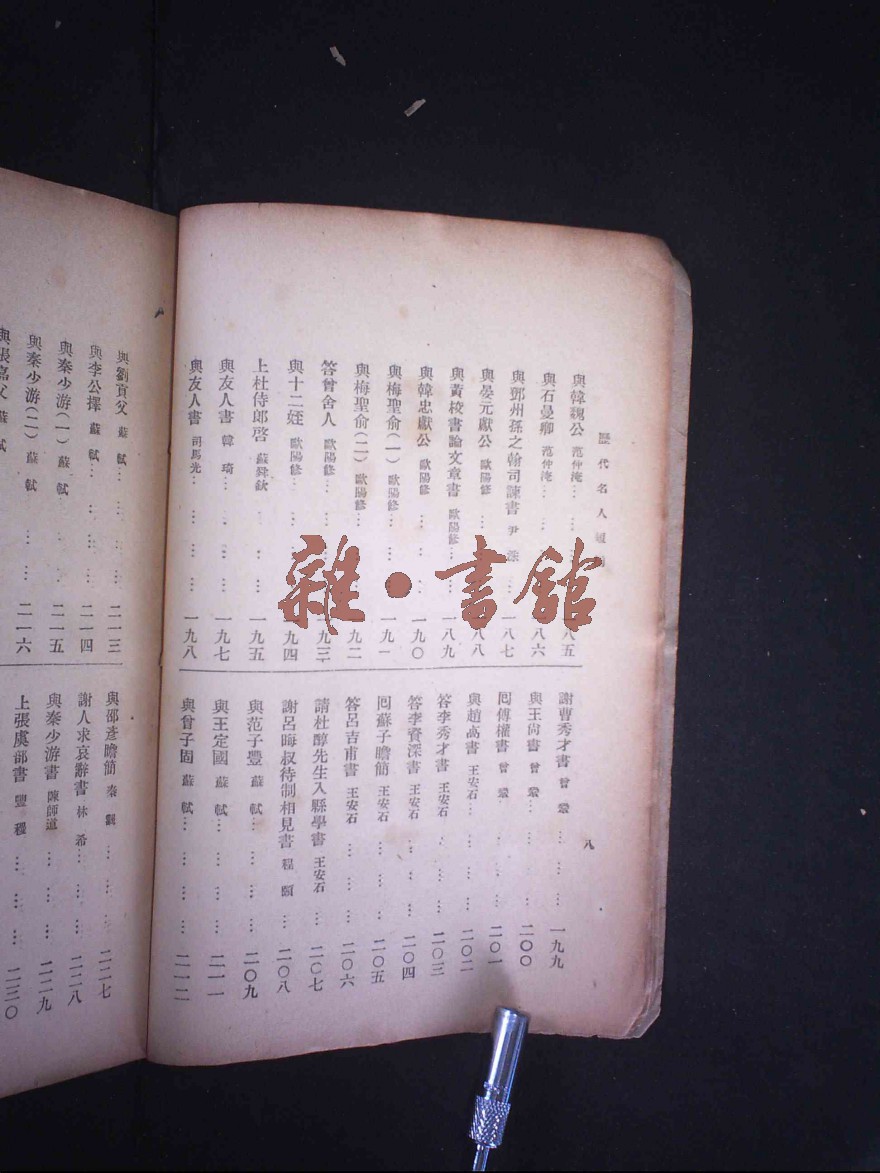 歷代名人
八
與韓魏公 范仲淹 八五
與石曼卿 范仲淹 八六
與鄧州孫之翰司諫書 尹洙 一八七
與晏元獻公 歐陽修 八八
與黃校書論文章書 歐陽修 一八九
與韓忠獻公 歐陽修 一九〇
與梅聖俞(一) 歐陽修 一九一
與梅聖俞(二) 歐陽修 九二
答曾舍人 歐陽修 九三
與十二姪 歐陽修 九四
上杜侍郎啓 蘇舜欽 一九五
與友人書 韓琦 一九七
與友人書 司馬光 一九八
謝曹秀才書 曾鞏 一九九
與王尙書 曾鞏 二〇〇
囘傅權書 曾鞏 二〇一
與趙卨書 王安石 二〇二
答李秀才書 王安石 二〇三
答李資深書 王安石 二〇四
囘蘇子瞻簡 王安石 二〇五
答呂吉甫書 王安石 二〇六
請杜醇先生入縣學書 王安石 二〇七
謝呂晦叔待制相見書 程頤 二〇八
與范子豐 蘇軾 二〇九
與王定國 蘇軾 二一一
與曾子固 蘇軾 二一二
與劉貢父 蘇軾 二一三
與李公擇 蘇軾 二一四
與秦少游(一) 蘇軾 二一五
與秦少游(二) 蘇軾 二一六
與張嘉父 蘇軾
與邵彥瞻簡 秦觀 二二七
謝人求哀辭書 林希 二二八
與秦少游書 陳師道 二二九
上張虞部書 豐稷 二三〇
雜·書館